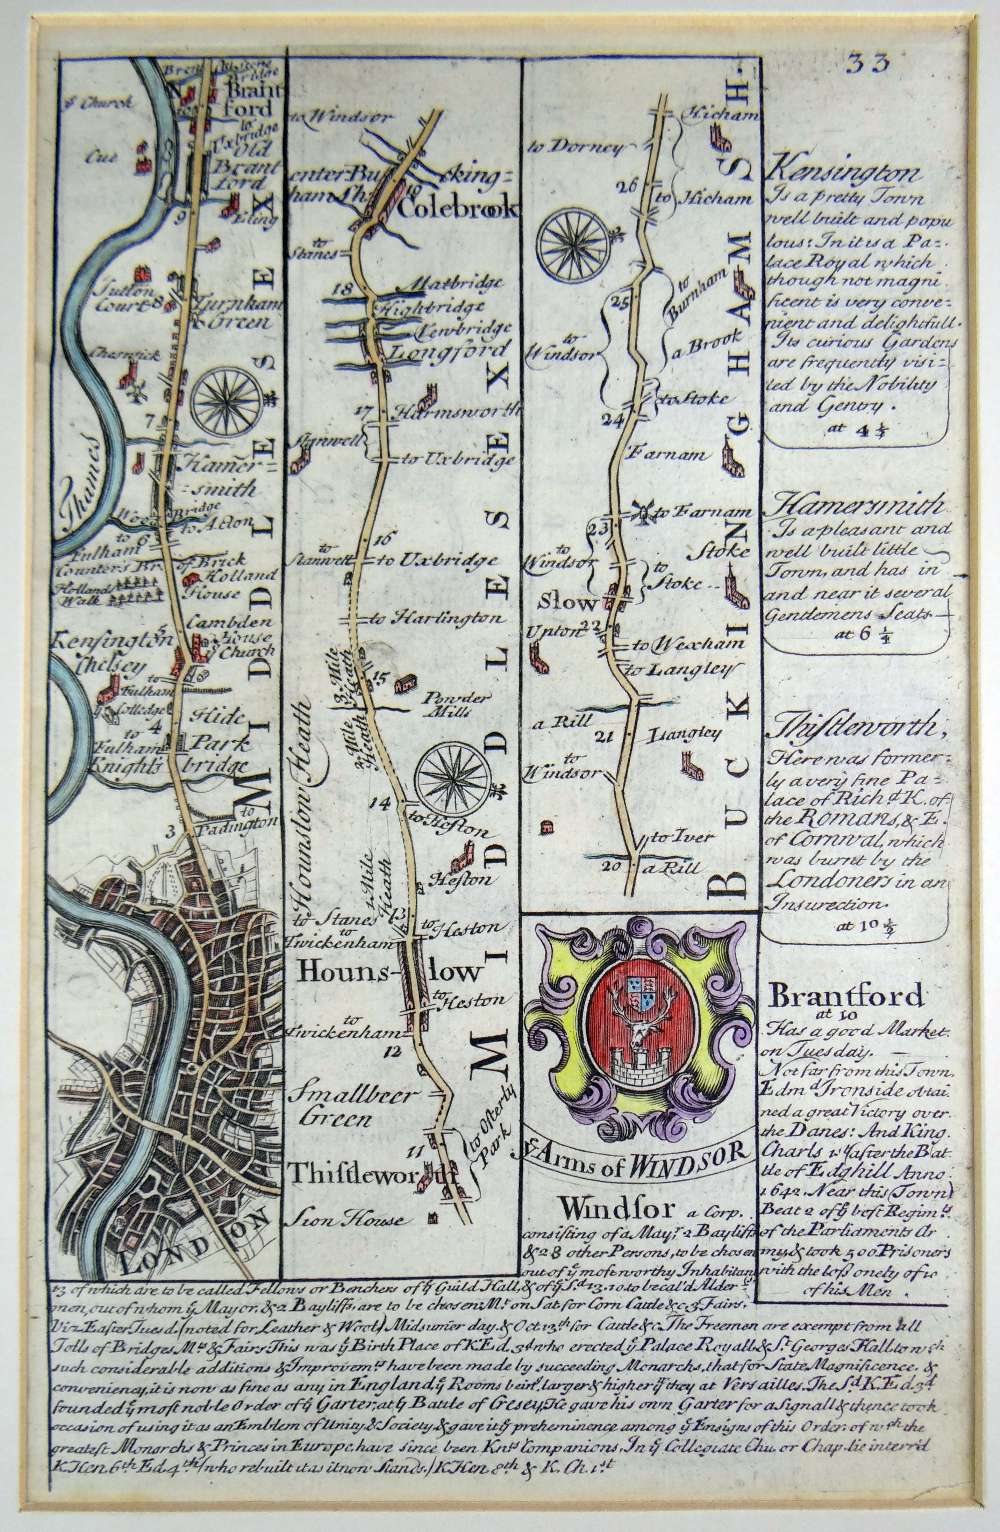 33
Brent
Brant
ford
ye Church
to
Uxbridge
Old
Brant
ford
Cue
9
Eling
Sutton
Court
8
Turnham
Green
Cheswick
7
Thames
Hamer-
-smith
Bridge
to Acton
to
Fulham
6
Counter's Br.
of Brick
Holland
Walk
Holland
House
Kensington
Cambden
House
ye Church
Chelsey
ye Colledge
to
Fulham
5
4
Hide
Park
to
Fulham
Knight's bridge
to
Padington
3
LONDON
MIDDLESEX
to Windsor
enter Bucking=
ham Sh:
19
Colebrook
to
Stanes
18
Matbridge
Highbridge
Newbridge
Longford
17
Harmsworth
Stanwell
to Uxbridge
16
to
Stanwell
to Uxbridge
to Harlington
3 Mile
Heath
15
Powder
Mills
3 Mile
Heath
Hounslow Heath
14
to Heston
2 Mile
Heath
Heston
to Stanes
13
to
Heston
to
Twickenham
Houns-low
to
Heston
to
Twickenham
12
Smallbeer
Green
to Osterly
Park
11
Thistleworth
Sion House
MIDDLESEX
Hicham
to Dorney
26
to Hicham
25
to
Burnham
to
Windsor
a Brook
to Stoke
24
Farnam
to Farnam
23
Stoke
to
Windsor
to
Stoke
Slow
Upton
22
to Wexham
to Langley
a Rill
21
Langley
to
Windsor
to Iver
20
a Rill
BUCKINGHAMSH.
ye Arms of WINDSOR
Kensington
Is a pretty Town
well built and popu
lous: In it is a Pa-
lace Royal which
though not magni
ficent is very conve-
nient and delightfull.
Its curious Gardens
are frequently visi-
ted by the Nobility
and Gentry.
at 4 ½
Hamersmith
Is a pleasant and
well built little
Town, and has in
and near it several
Gentlemens Seats
at 6 ¼
Thistleworth,
Here was former-
ly a very fine Pa-
lace of Richd. K. of
the Romans, & E.
of Cornwal, which
was burnt by the
Londoners in an
Insurection.
at 10 ½
Brantford
at 10
Has a good Market
on Tuesday.
Not far from this Town
Edmd. Ironside obtai
ned a great Victory over
the Danes: And King
Charls 1st after the Bat
tle of Edghill Anno
1642. Near this (Town)
Beat 2 of ye best Regimts.
of the Parliaments Ar
my & took 500 Prisoners
with the loss onely of 10
of his Men.
Windsor a Corp.
consisting of a Mayr. 2 Bayliffs
& 28 other Persons, to be chosen
out of ye most worthy Inhabitans
13 of which are to be called Fellows or Benchers of ye Guild Hall, & of ye Sd. 13, 10 to be cal'd Alder-
men, out of whom ye Mayor, & 2 Bayliffs, are to be chosen Mt. on Sat. for Corn Cattle &c. 3 Fairs,
Viz Easter Tuesd. (noted for Leather & Wool) Midsumer day, & Oct. 13th for Cattle &c. The Freemen are exempt from all
Tolls of Bridges Mts. & Fairs This was ye Birth Place of K. Ed. 3d who erected ye Palace Royall & St. Georges Hall, to wch
such considerable additions & Improvemts. have been made by succeeding Monarchs, that for State Magnificence, &
conveniency, it is now as fine as any in England, ye Rooms being larger & higher yn they at Versailles. The Sd. K. Ed. 3d
founded ye most noble Order of ye Garter, at ye Batule of Cresey, He gave his own Garter for a Signall & thence took
occasion of using it as an Emblem of Unity, & Society, & gave it ye preheminence among ye Ensigns of this Order: of wch the
greatest Monarchs & Princes in Europe, have since been Knts. Companions. In ye Collegiate Chu. or Chap. lie interr'd
K. Hen 6th Ed. 4th (who rebuilt it as it now stands.) K. Hen 8th & K. Ch. 1st